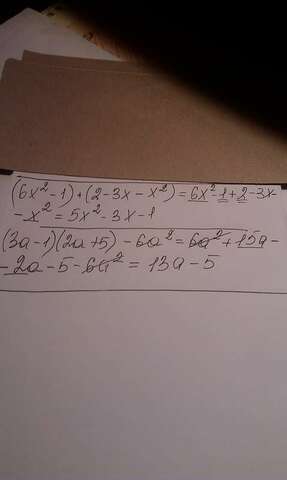 (6x²-1)+(2-3x-x²)=6x²-1+2-3x-
-x²=5x²-3x-1
(3a-1)(2a+5)-6a²=6a²+15a-
-2a-5-6a²=13a-5